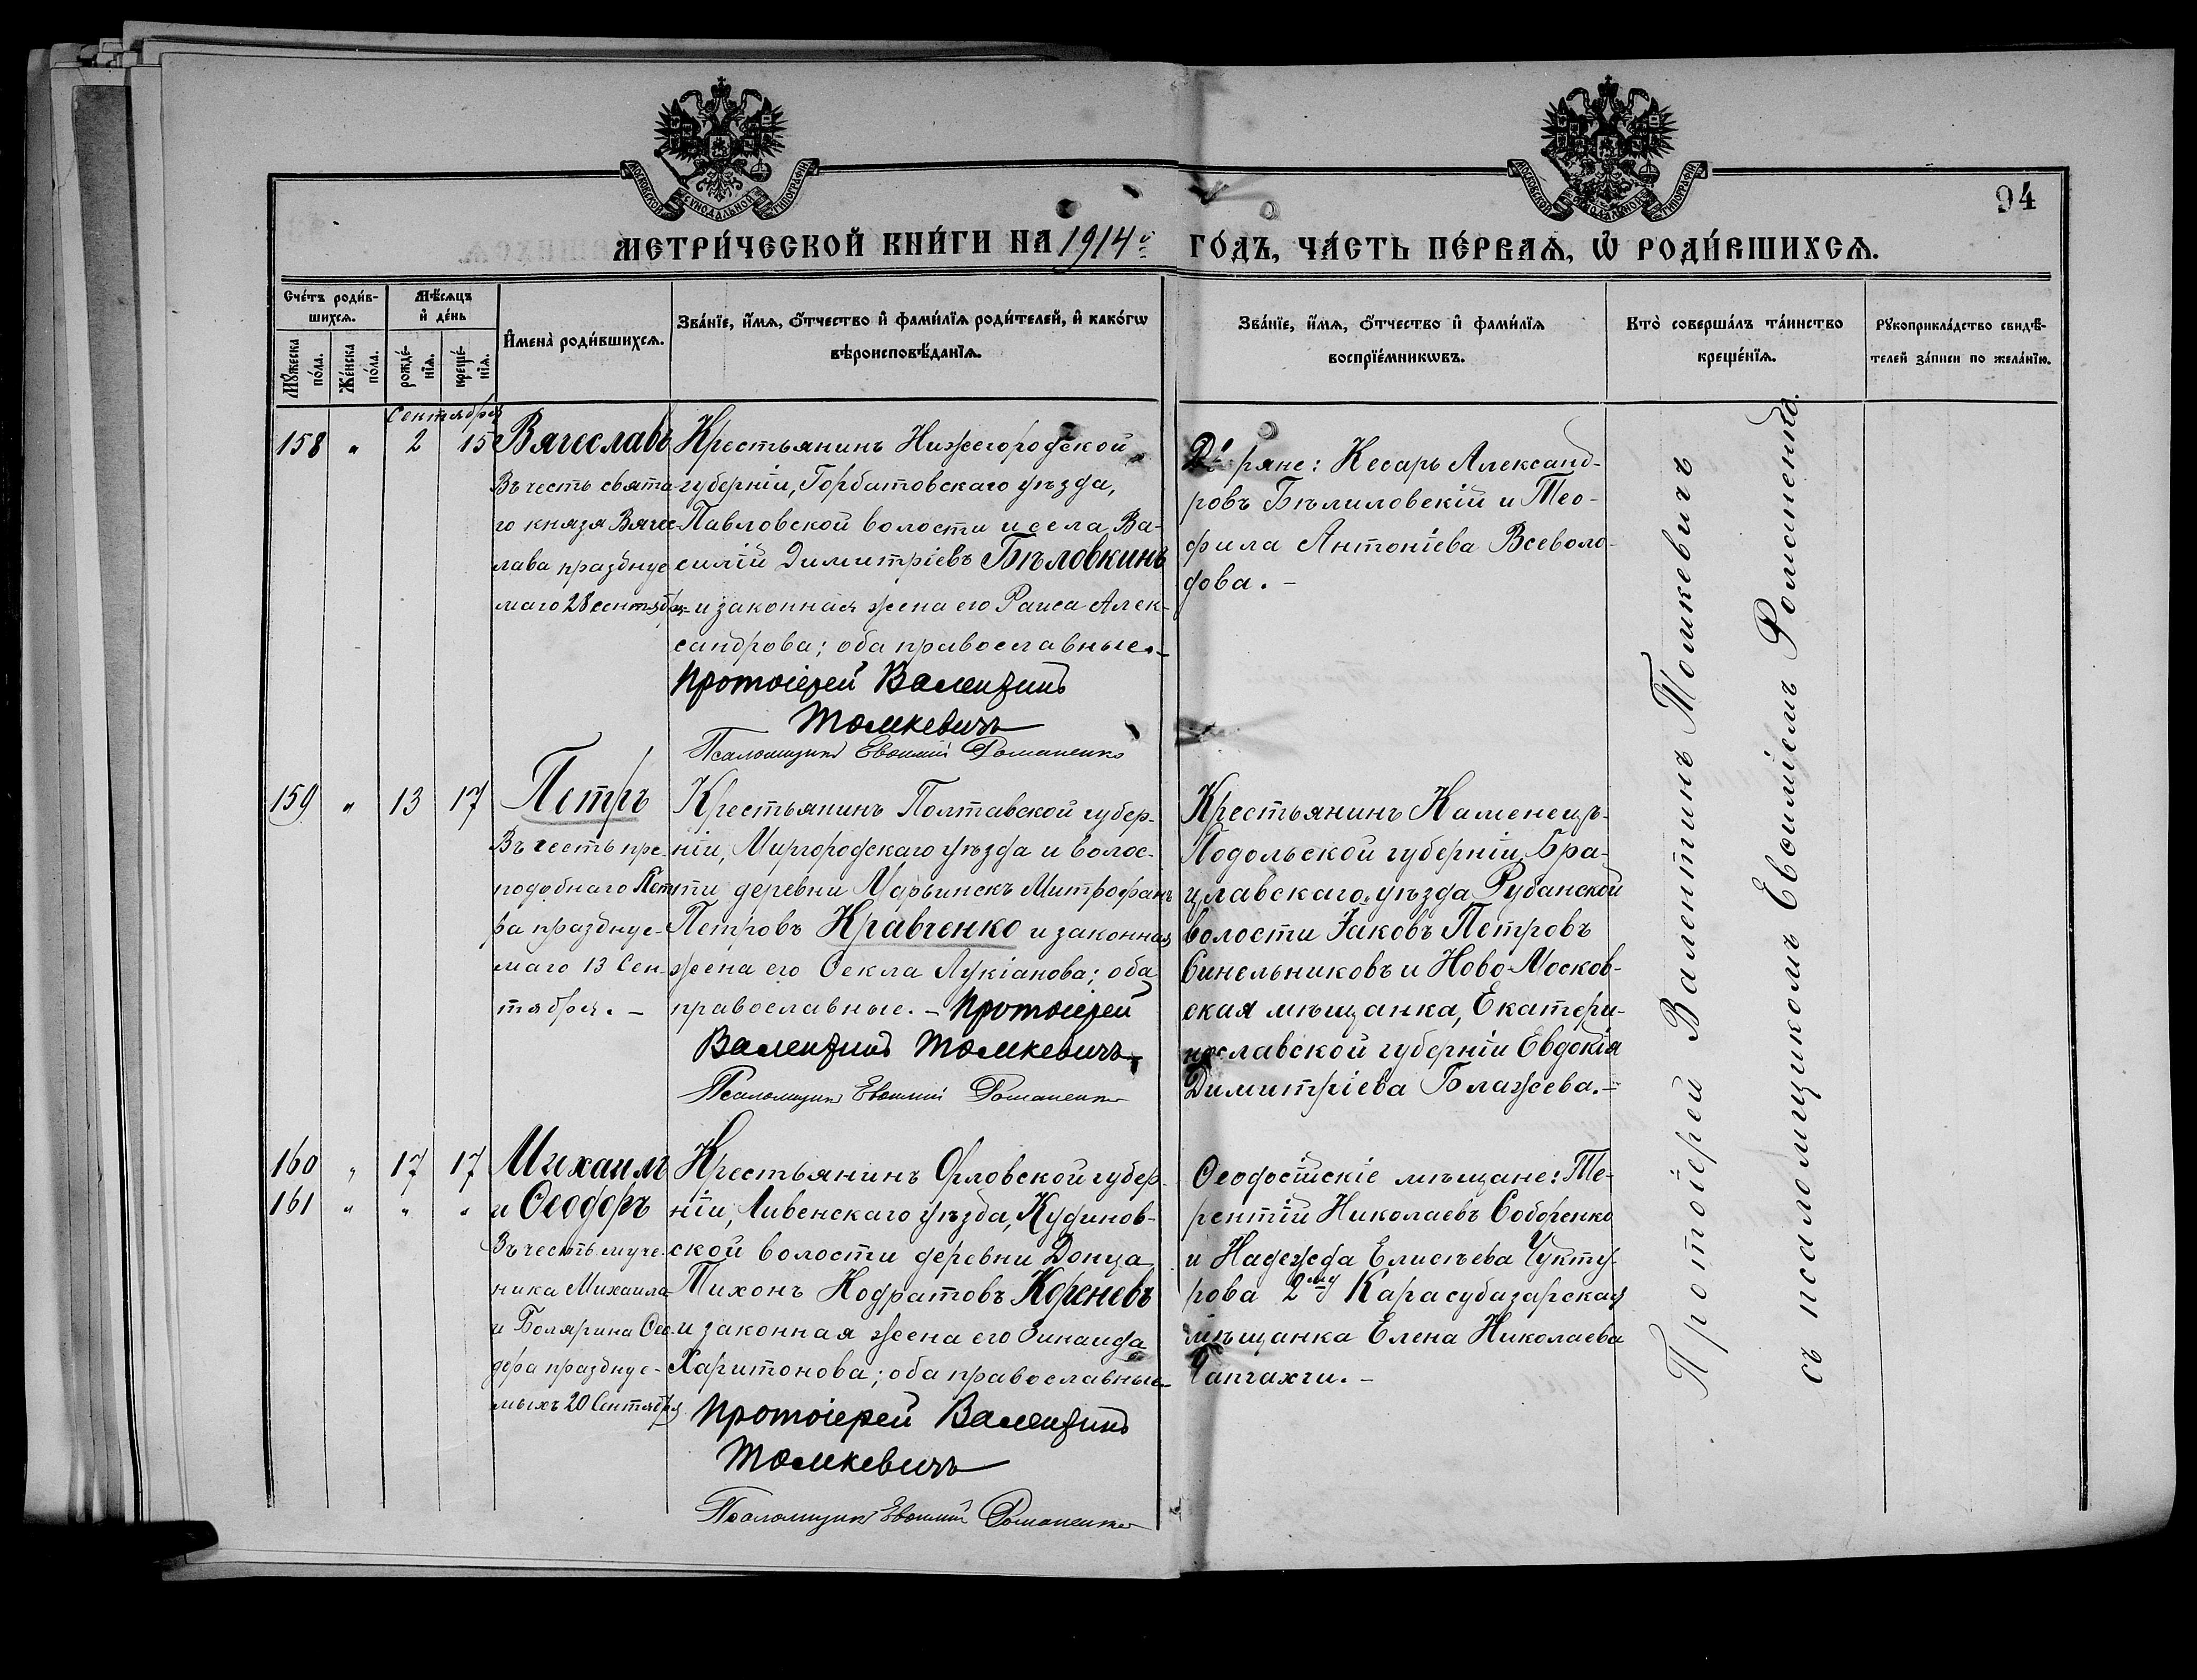 МОСКОВСКОЙ СѴНОДАЛЬНОЙ ТИПОГРАФІИ
МОСКОВСКОЙ СѴНОДАЛЬНОЙ ТИПОГРАФІИ
94
МЕТРИ́ЧЕСКОЙ КНИ́ГИ НА 1914й ГО́ДЪ, ЧА́СТЬ ПЕ́РВАѦ, Ѡ РОДИ́ВШИХСѦ.
Сче́тъ роди́в-
шихсѧ.
Мꙋ́жеска
по́ла.
Же́нска
по́ла.
Мѣ́сѧцъ
и҆ де́нь
рожде́-
нїѧ.
креще́-
нїѧ.
И҆мена̀ роди́вшихсѧ.
Зва́нїе, и҆́мѧ, ѻ҆́тчество и҆ фами́лїѧ роди́телей, и҆ како́гѡ
вѣроисповѣ́данїѧ.
Зва́нїе, и҆́мѧ, ѻ҆́тчество и҆ фами́лїѧ
воспрїе́мникѡвъ.
Кто̀ соверша́лъ та́инство
креще́нїѧ.
Рꙋкоприкла́дство свидѣ́-
телей за́писи по жела́нїю.
Сентября
158 " 2 15
Вячеславъ
Въ честь свята-
го князя Вячес-
лава празднуе-
маго 28 сентября
Крестьянинъ Нижегородской
губерніи, Горбатовскаго уѣзда,
Павловской волости и села, Ва-
силій Димитріевъ Бѣловкинъ
и законная жена его Раиса Алек-
сандрова; оба православные.
Протоіерей Валентинъ
Томкевичъ
Псаломщикъ Евѳимій Романенко
Дворяне: Кесарь Александ-
ровъ Бѣлиловскій и Тео-
фила Антоніева Всеволо-
дова. –
159 " 13 17
Петръ
Въ честь пре-
подобнаго Пет-
ра празднуе-
маго 13 Сен-
тября. –
Крестьянинъ Полтавской губер-
ніи, Миргородскаго уѣзда и волос-
ти деревни Марьинскъ Митрофанъ
Петровъ Кравченко и законная
жена его Ѳекла Лукіанова; оба
православные. – Протоіерей
Валентинъ Томкевичъ
Псаломщикъ Евѳимій Романенко
Крестьянинъ Каменецъ-
Подольской губерніи, Бра-
цлавскаго уѣзда Рубанской
волости Іаковъ Петровъ
Синельниковъ и Ново-Москов-
ская мѣщанка, Екатери-
нославской губерніи Евдокія
Димитріева Блажеева. –
160 " 17 17
161 " " "
Михаилъ
и Ѳеодоръ
Въ честь муче-
ника Михаила
и Болярина Ѳео-
дора празднуе-
мыхъ 20 Сентября
Крестьянинъ Орловской губер-
ніи, Ливенскаго уѣзда, Кудинов-
ской волости деревни Донца
Тихонъ Кодратовъ Кореневъ
и законная жена его Зинаида
Харитонова; оба православные
Протоіерей Валентинъ
Томкевичъ
Псаломщикъ Евѳимій Романенко
Ѳеодосійскіе мѣщане: Те-
рентій Николаевъ Соборенко
и Надежда Елисѣева Чукту-
рова 2му Карасубазарская
мѣщанка Елена Николаева
Чапчахчи. –
Протоіерей Валентинъ Томкевичъ
съ псаломщикомъ Евѳиміемъ Романенко.